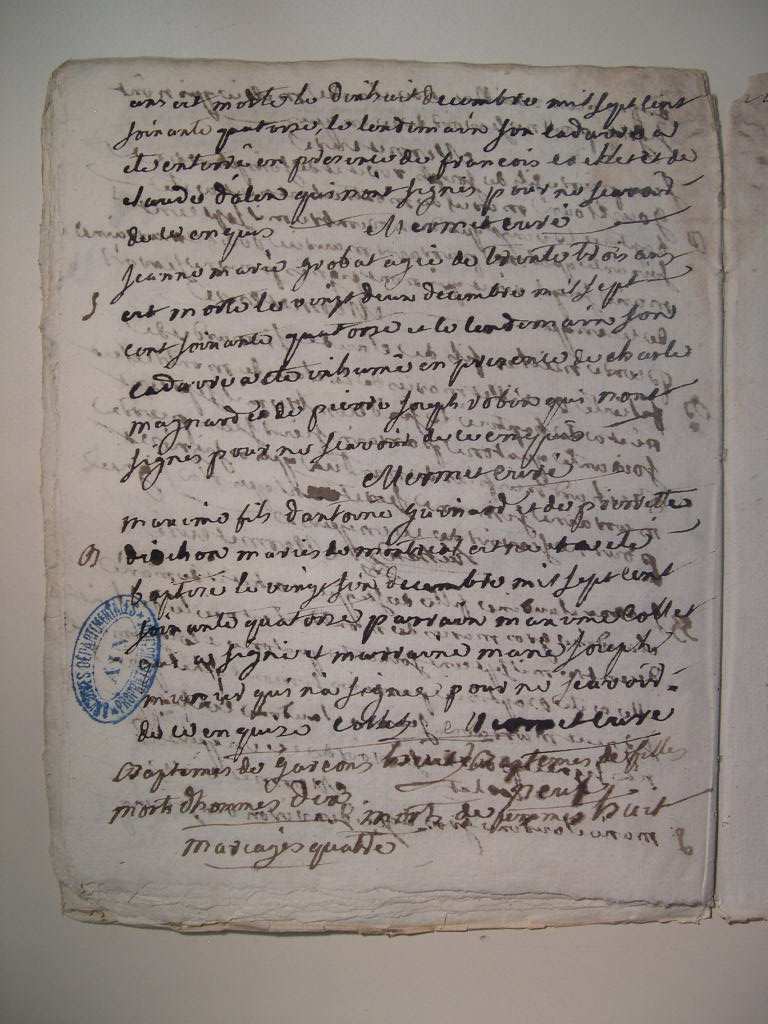 ans est morte le dixhuit decembre mil sept cent
soixante quatorze, le lendemain son cadavre a
ete enterré en presence de francois collet et de
claude dalon qui nont signés pour ne scavoir
de ce enquis Mermet curé
jeanne marie grobat agée de trente trois ans
S
est morte le vingt deux decembre mil sept
cent soixante quatorze et le lendemain son
cadavre a ete inhumé en presence de charle
magnard et de pierre joseph robin qui nont
signés pour ne scavoir de ce enquis
Mermet curé
maxime fils dantoine guinard et de pierrette
B
dichon mariés de montreal est né et a eté
baptisé le vingt six decembre mil sept cent
soixante quatorze parrain maxime Collet
qui a signé et marraine marie joseph
munier qui na signée pour ne scavoir
de ce enquise Collet Mermet curé
ARCHIVES DÉPARTEMENTALES
AIN
Baptemes de garcons huit Baptemes de filles
neuf
morts dhommes dix morts de femmes huit
mariages quattre